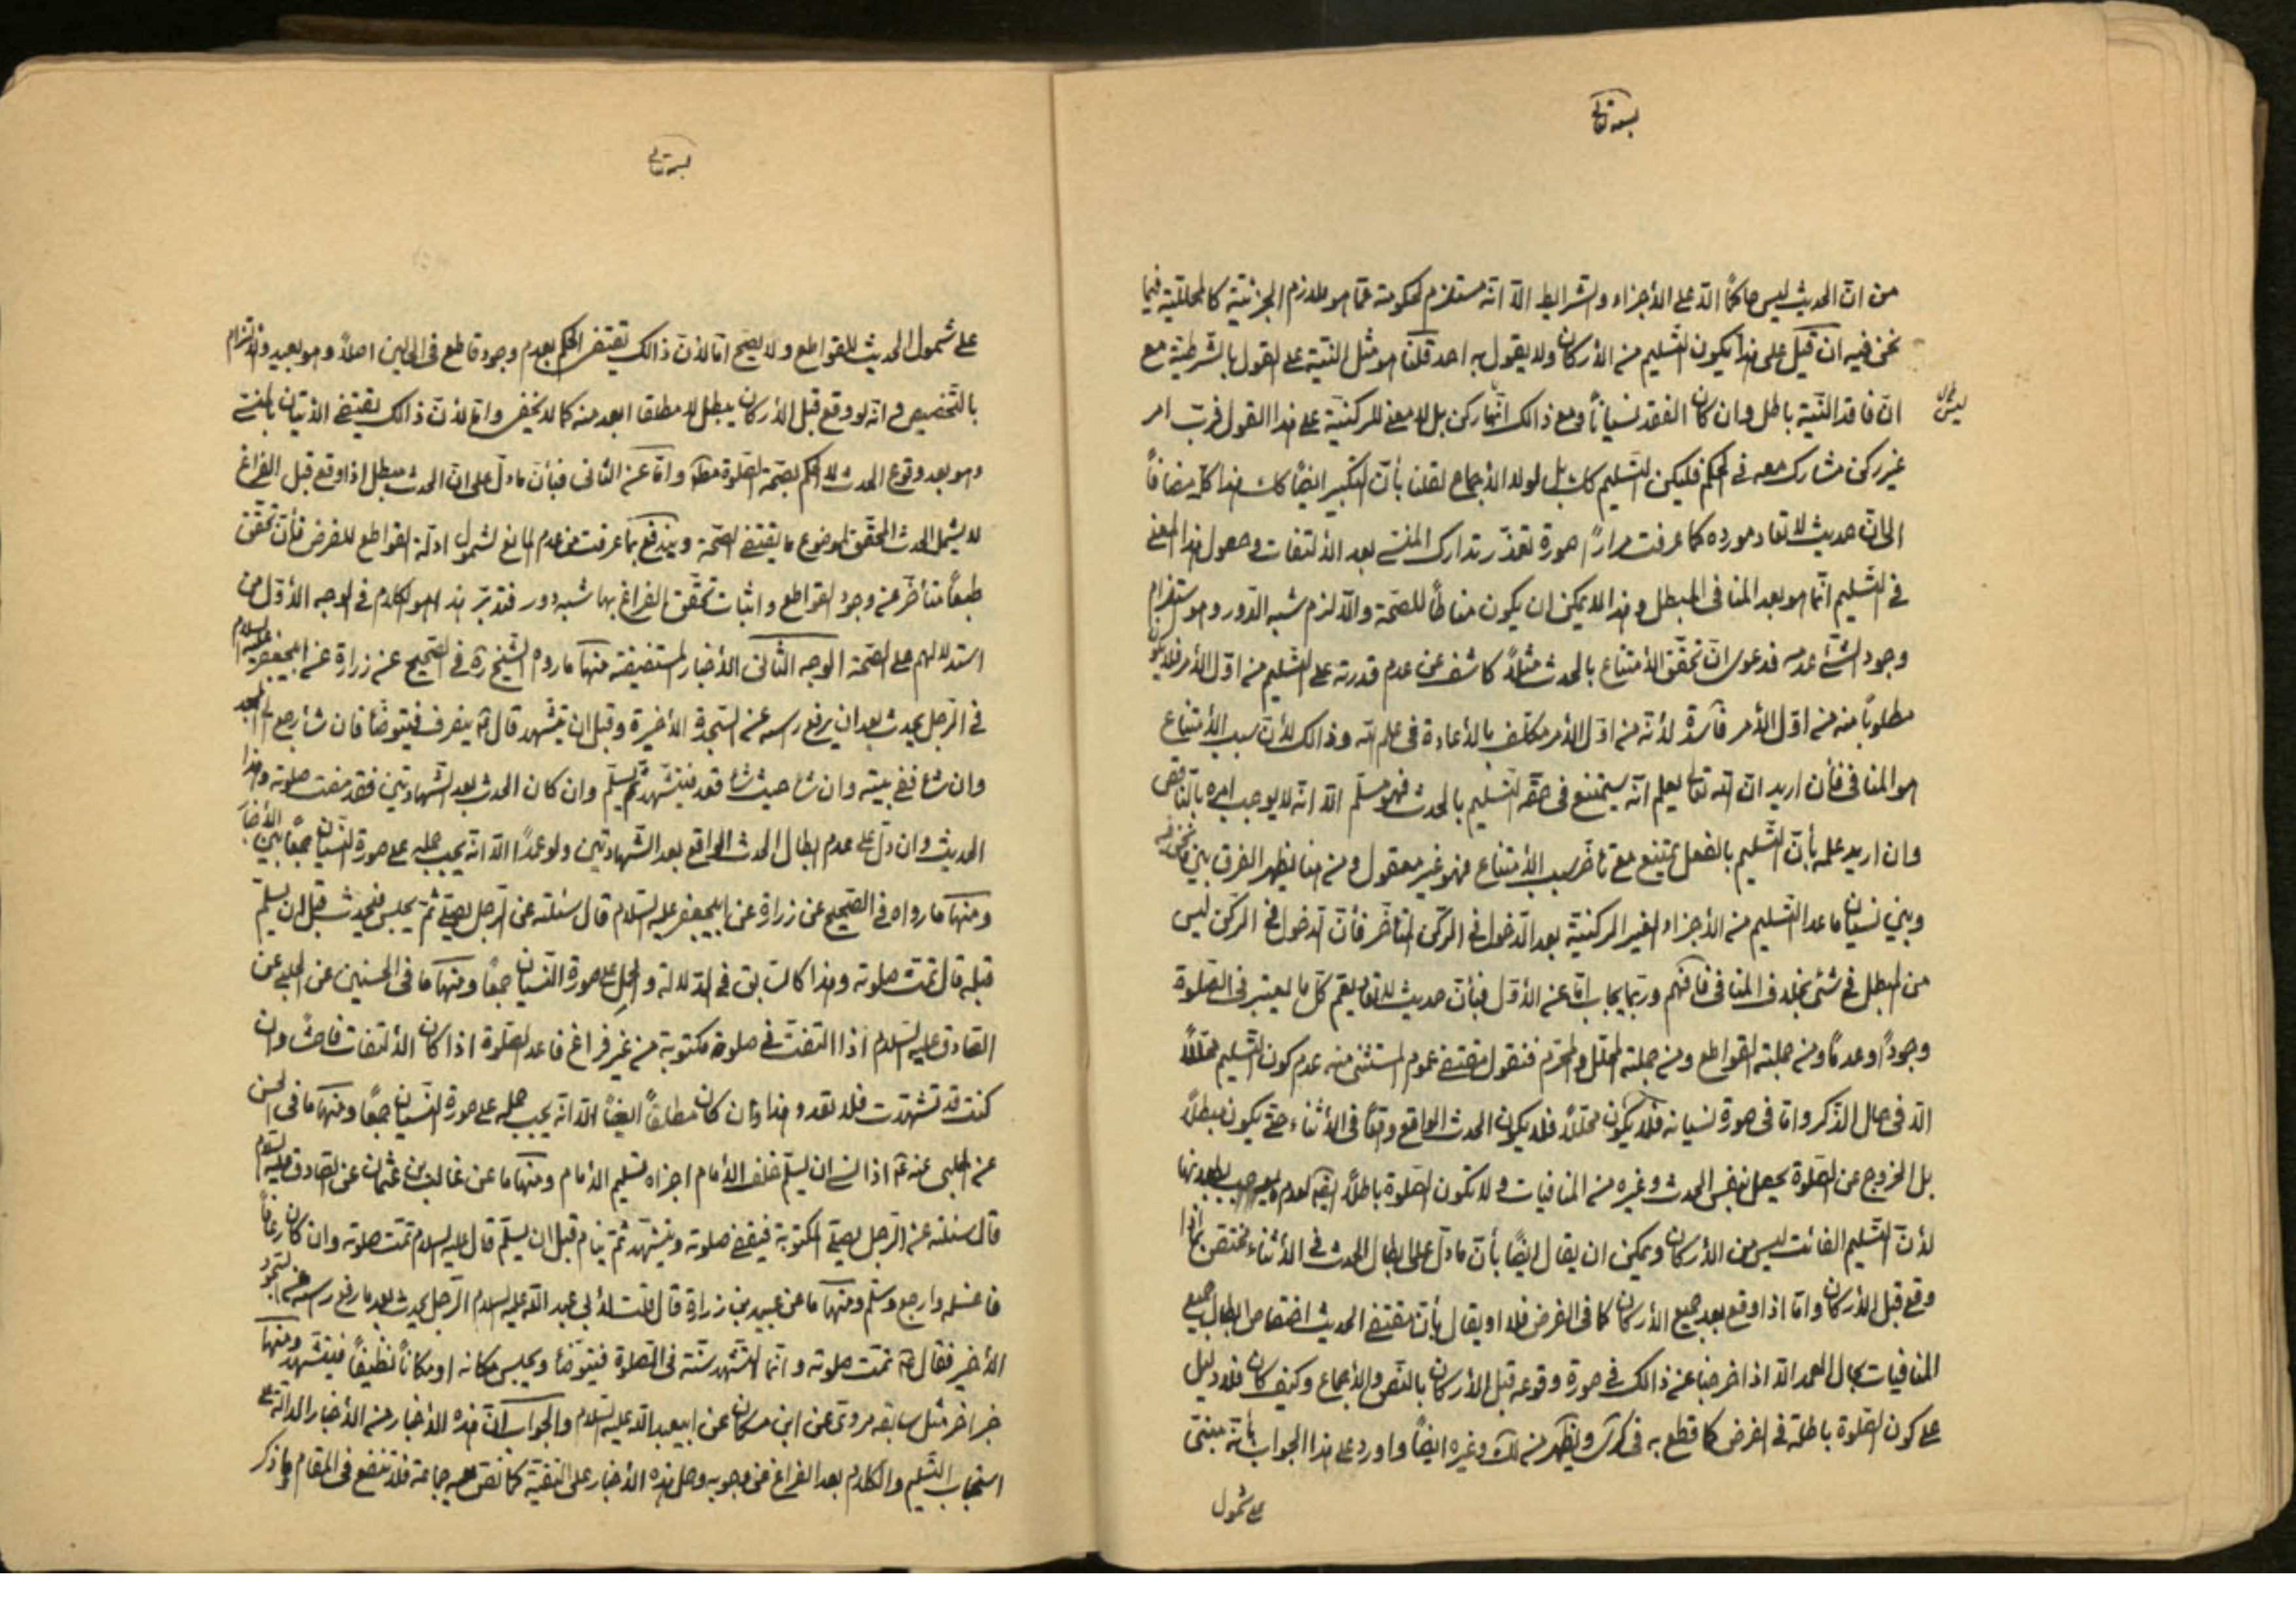 بسمه تعالى
من انّ الحديث ليس حاكمًا الّا على الأجزاء والشرايط الّا انّه مستلزم لحكومته عمّا هو ملازم الجزئيّة كالمحلّليّة فيما
نحن فيه ان قيل على هذا يكون التسليم من الأركان ولا يقول به احد قلنا هو مثل النيّة على القول بالشرطيّة مع
انّ فاقد النيّة باطل وان كان الفقد نسيانًا ومع ذالك انّها ركن بل لا معنى للركنيّة على هذا القول فربّ امر
غير ركن مشارك معه فى الحكم فليكن التسليم كك بل لولا الأجماع لقلنا بأنّ التكبير ايضًا كك هذا كلّه مضافًا
الى انّ حديث لا تعاد مورده كما عرفت مرارًا صورة تعذّر تدارك المنسى بعد الألتفات وحصول هذا المعنى
فى التسليم انّما هو بعد المنافى المبطل وهذا لا يمكن ان يكون مناطًا للصحّة والّا لزم شبه الدّور وهو استلزام
وجود الشئ عدمه فدعوى انّ تحقّق الأمتناع بالحدث مثلًا كاشف عن عدم قدرته على التسليم من اوّل الأمر فلا يكون
مطلوبًا منه من اوّل الأمر فاسدة لأنّه من اوّل الأمر مكلّف بالأعادة فى علم الله وذالك لأنّ سبب الأمتناع
هو المنافى فأن اريد انّ الله تعالى يعلم انّه سيمتنع فى حقّه التسليم بالحدث فهو مسلّم الّا انّه لا يوجب امره بالناقص
وان اريد علمه بأنّ التسليم بالفعل يمتنع مع تأخّر سبب الأمتناع فهو غير معقول ومن هنا يظهر الفرق بين ما نحن فيه
وبين نسيان ما عدا التسليم من الأجزاء الغير الركنيّة بعد الدّخول فى الركن المتأخّر فأنّ الدخول فى الركن ليس
من المبطل فى شئ بخلاف المنافى فافهم وربّما يجاب امّا عن الأوّل فبأنّ حديث لا تعاد يعمّ كلّ ما يعتبر فى الصّلوة
وجودًا وعدمًا ومن جملته القواطع ومن جملته المحلّل والمحرّم فنقول مقتضى عموم المستثنى منه عدم كون التسليم محلّلًا
الّا فى حال الذّكر وامّا فى صورة نسيانه فلا يكون محلّلًا فلا يكون الحدث الواقع واقعًا فى الأثناء حتّى يكون مبطلًا
بل الخروج عن الصّلوة يحصل بنفس الحدث وغيره من المنافيات ولا تكون الصّلوة باطلة
لأنّ التسليم الفائت ليس من الأركان ويمكن ان يقال ايضًا بأنّ ما دلّ على ابطال الحدث فى الأثناء مختصّ بما اذا
وقع قبل الأركان وامّا اذا وقع بعد جميع الأركان كما فى الفرض فلا او يقال بأنّ مقتضى الحديث اختصاص ابطال جميع
المنافيات بحال العمد الّا اذا خرجنا عن ذالك فى صورة وقوعه قبل الأركان بالنّص والأجماع وكيف كان فلا دليل
على كون الصّلوة باطلة فى الفرض كما قطع به فى ويظهر من وغيره ايضًا واورد على هذا الجواب بأنّه مبتنى
على شمول
بسمه تعالى
على شمول الحديث للقواطع ولا يصحّ امّا لأنّ ذالك يقتضى الحكم بعدم وجود قاطع فى البين اصلًا وهو بعيد والألتزام
بالتخصيص فى انّه لو وقع قبل الأركان يبطل لا مطلقا ابعد منه كما لا يخفى وامّا لأنّ ذالك يقتضى الأتيان بالمنسى
وهو بعد وقوع الحدث لا الحكم بصحّة الصّلوة مطلقا وامّا عن الثّانى فبأنّ ما دلّ على انّ الحدث مبطل اذا وقع قبل الفراغ
لا يشمل الحدث المحقّق لموضوع ما يقتضى الصّحة ويندفع بما عرفت من عدم المانع لشمول ادلّة القواطع للفرض فأنّ تحقّق
طبعًا متأخّر عن وجود القواطع واثبات تحقّق الفراغ بها شبه دور فتدبّر هذا هو الكلام فى الوجه الأوّل من
استدلالهم على الصّحة الوجه الثّانى الأخبار المستفيضة منها ما رواه الشيخ ره فى الصّحيح عن زرارة عن ابيجعفر عليه السلام
فى الرّجل يحدث بعد ان يرفع رأسه عن السّجدة الأخيرة وقبل ان يتشهّد قال ع ينصرف فيتوضّأ فان شاء رجع الى المسجد
وان شاء ففى بيته وان شاء حيث شاء قعد فيتشهّد ثمّ يسلّم وان كان الحدث بعد الشهادتين فقد مضت صلوته وهذا
الحديث وان دلّ على عدم ابطال الحدث الواقع بعد الشهادتين ولو عمدًا الّا انّه يجب حمله على صورة النّسيان جمعًا بين الأخبار
ومنها ما رواه فى الصّحيح عن زرارة عن ابيجعفر عليه السّلام قال سئلته عن الرّجل يصلّى ثمّ يجلس فيحدث قبل ان يسلّم
قبله قال تمّت صلوته وهذا كالسّابق فى الدّلالة والحمل على صورة النّسيان جمعًا ومنها ما فى الحسنين عن الحلبى عن
الصّادق عليه السّلام اذا التفتّ فى صلوة مكتوبة من غير فراغ فاعد الصّلوة اذا كان الألتفات فاحشًا وان
كنت قد تشهّدت فلا تعد وهذا وان كان مطلقًا ايضًا الّا انّه يجب حمله على صورة النّسيان جمعًا ومنها ما فى الحسن
عن الحلبى عنه ع اذا نسى ان يسلّم خلف الأمام اجزاه تسليم الأمام ومنها ما عن غالب بن عثمان عن الصّادق عليه السلام
قال سئلته عن الرّجل يصلّى المكتوبة فيقضى صلوته ويتشهّد ثمّ ينام قبل ان يسلّم قال عليه السلام تمّت صلوته وان كان رعافًا
فاغسله وارجع وسلّم ومنها ما عن عبيد بن زرارة قال قلت لأبى عبد الله عليه السلام الرّجل يحدث بعد ما رفع رأسه عن السّجود
الأخير فقال ع تمّت صلوته وانّما التّشهد سنّة فى الصّلوة فيتوضّأ ويجلس مكانه او مكانًا نظيفًا فيتشهّد ومنها
خبر اخر مثل سابقه مروىّ عن ابن مسكان عن ابيعبد الله عليه السّلام والجواب انّ هذه الأخبار من الأخبار الدالّة على
استحباب التّسليم والكلام بعد الفراغ عن وجوبه وحمل هذه الأخبار على التقيّة كما نصّ عليه جماعة فلا تنفع فى المقام وما ذكر